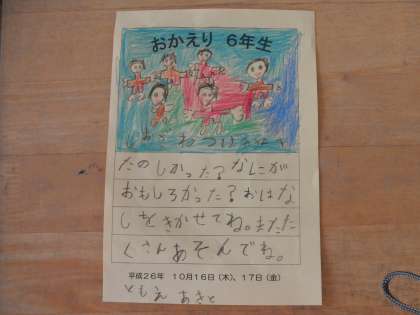 おかえり 6年生
たのしかった？なにが
おもしろかった？おはな
しをきかせてね。またた
くさんあそんでね。
平成26年 10月16日(木)、17日(金)
ともえ あきと